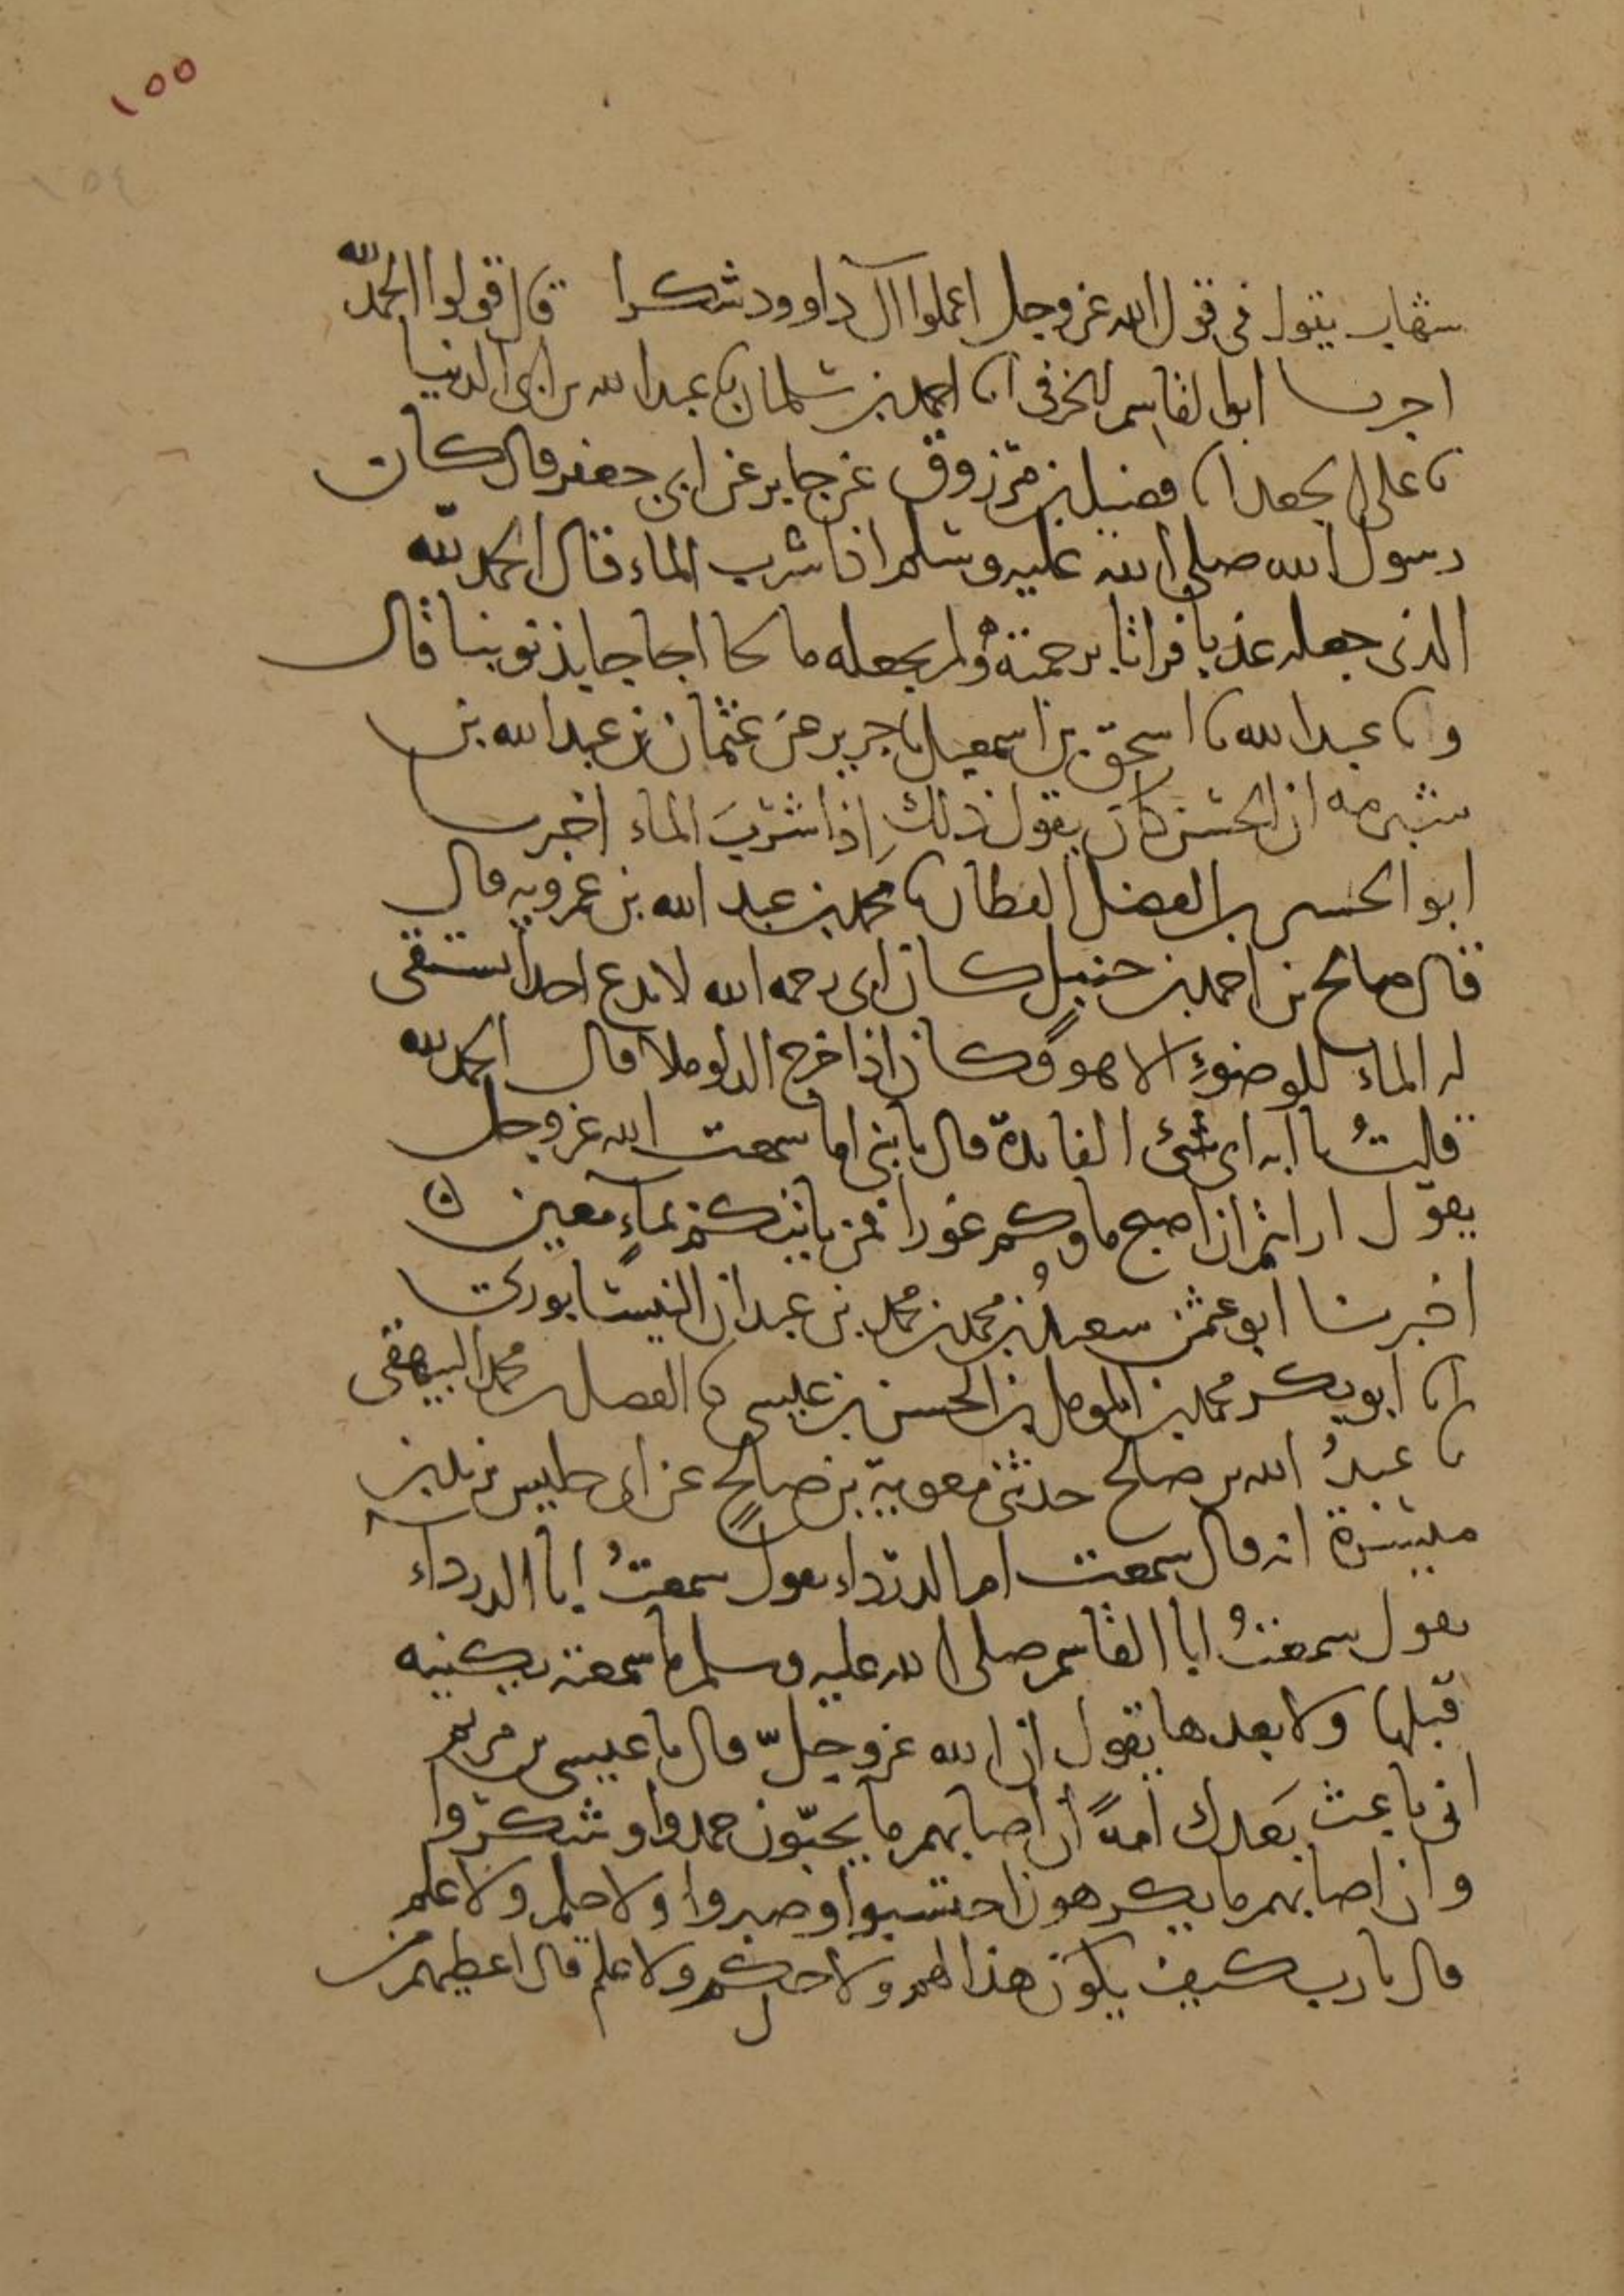 ١٥٥
١٥٤
شهاب يقول فى قول الله عز وجل اعملوا آل داوود شكرا قال قولوا الحمد لله
اخبرنا ابو القاسم الخرقى انا احمد بن سلمان نا عبد الله بن ابى الدنيا
نا على بن الجعد انا فضيل بن مرزوق عن جابر عن ابى جعفر قال كان
رسول الله صلى الله عليه وسلم اذا شرب الماء قال الحمد لله
الذى جعله عذبا فراتا برحمته ولم يجعله مالحا اجاجا بذنوبنا قال
ونا عبد الله نا اسحق بن اسمعيل نا جرير عن عثمان بن عبد الله بن
شبرمه ان الحسن كان يقول ذلك اذا شرب الماء اخبرنا
ابو الحسين بن الفضل القطان نا محمد بن عبد الله بن عمرويه قال
قال صالح بن احمد بن حنبل كان ابى رحمه الله لا يدع احدا يستقى
له الماء للوضوء الا هو وكان اذا خرج الدلو ملآ قال الحمد لله
قلت يا ابه اى شئ الفايدة قال يا بنى اما سمعت الله عز وجل
يقول ارايتم ان اصبح ماوكم غورا فمن ياتيكم بماء معين ٥
اخبرنا ابو عثمن سعيد بن محمد بن محمد بن عبدان النيسابورى
انا ابو بكر محمد بن المومل بن الحسن بن عيسى نا الفضل بن محمد البيهقى
نا عبد الله بن صالح حدثنى معوية بن صالح عن ابى حلبس يزيد بن
ميسرة انه قال سمعت ام الدرداء تقول سمعت ابا الدرداء
يقول سمعت ابا القاسم صلى الله عليه وسلم ما سمعته يكنيه
قبلها ولا بعدها يقول ان الله عز وجل قال يا عيسى بن مريم
انى باعث بعدك امة ان اصابهم ما يحبون حمدوا وشكروا
وان اصابهم ما يكرهون احتسبوا وصبروا ولا حلم ولا علم
قال يا رب كيف يكون هذا لهم ولا حكم ولا علم قال اعطيهم من